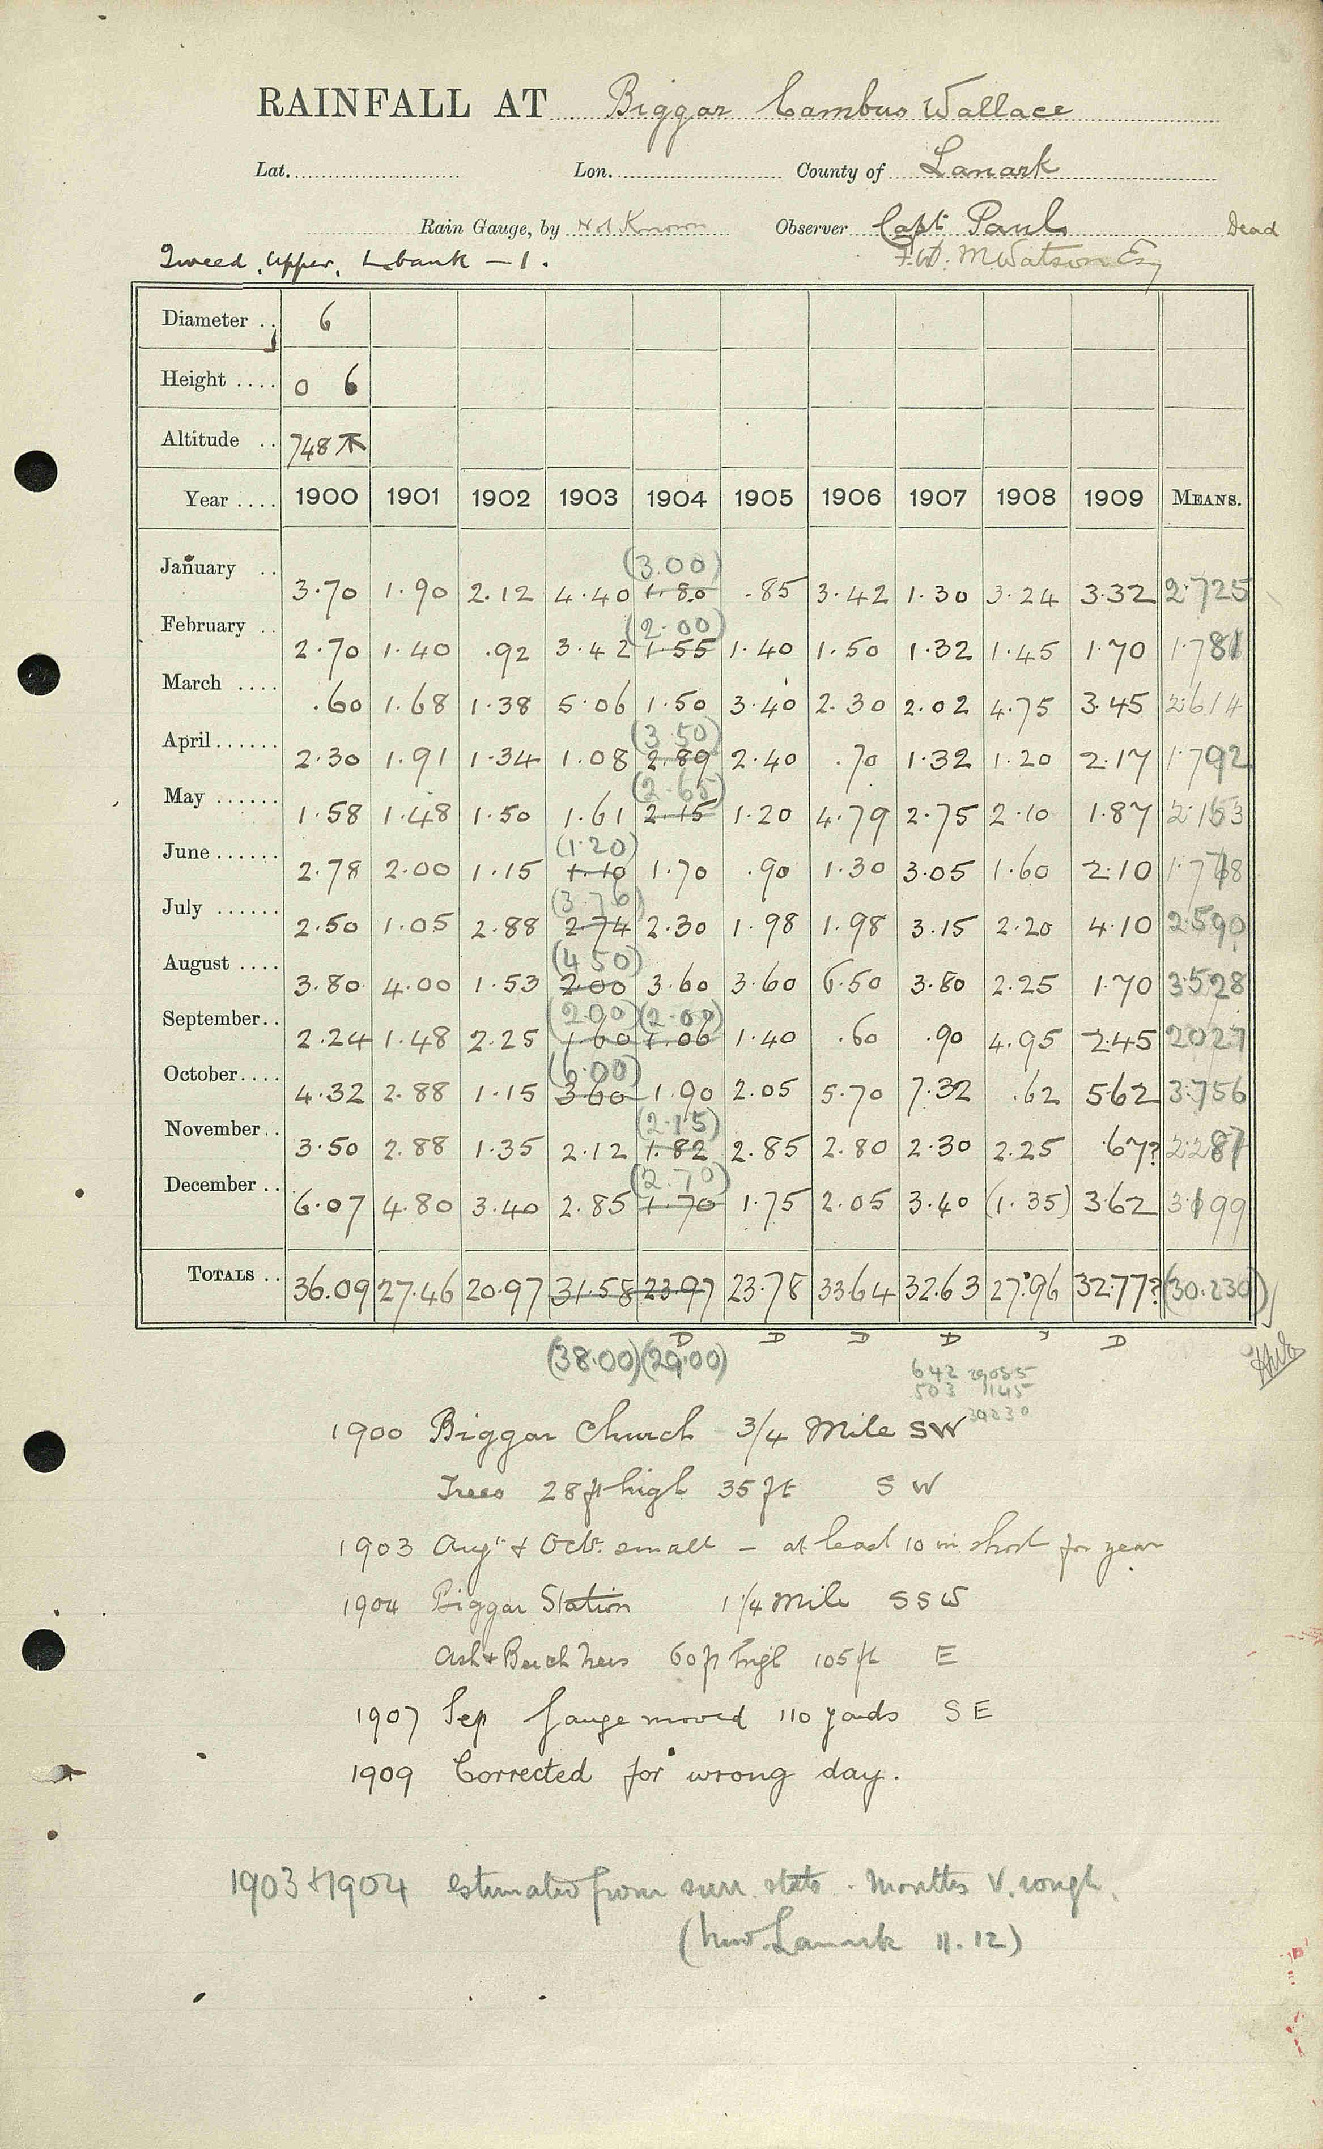 RAINFALL AT Biggar Cambus Wallace
Lat. Lon. County of Lanark
Rain Gauge, by Not Known Observer Capt Paul Dead
Tweed, Upper, L bank – 1. F.W. M Watson Esq
Diameter .. 6
Height .... 0 6
Altitude .. 748
Year .... 1900 1901 1902 1903 1904 1905 1906 1907 1908 1909 MEANS.
(3.00)
January .. 3.70 1.90 2.12 4.40 1.80 .85 3.42 1.30 3.24 3.32 2.725
(2.00)
February .. 2.70 1.40 .92 3.42 1.55 1.40 1.50 1.32 1.45 1.70 1.781
March .... .60 1.68 1.38 5.06 1.50 3.40 2.30 2.02 4.75 3.45 2.614
(3.50)
April ...... 2.30 1.91 1.34 1.08 2.89 2.40 .70 1.32 1.20 2.17 1.792
(2.65)
May ...... 1.58 1.48 1.50 1.61 2.15 1.20 4.79 2.75 2.10 1.87 2.153
(1.20)
June ...... 2.78 2.00 1.15 1.10 1.70 .90 1.30 3.05 1.60 2.10 1.778
(3.76)
July ...... 2.50 1.05 2.88 2.74 2.30 1.98 1.98 3.15 2.20 4.10 2.590
(4.50)
August .... 3.80 4.00 1.53 2.00 3.60 3.60 6.50 3.80 2.25 1.70 3.528
(2.00) (2.00)
September .. 2.24 1.48 2.25 1.60 1.06 1.40 .60 .90 4.95 2.45 2.027
(6.00)
October .... 4.32 2.88 1.15 3.60 1.90 2.05 5.70 7.32 .62 5.62 3.756
(2.15)
November .. 3.50 2.88 1.35 2.12 1.82 2.85 2.80 2.30 2.25 .67? 2.287
(2.70)
December .. 6.07 4.80 3.40 2.85 1.70 1.75 2.05 3.40 (1.35) 3.62 3.199
TOTALS .. 36.09 27.46 20.97 31.58 23.97 23.78 33.64 32.63 27.96 32.77? (30.230)
D D D D D
(38.00) (29.00)
642 29085
503 1145
30230
1900 Biggar Church 3/4 Mile SW
Trees 28 ft high 35 ft SW
1903 Augt & Octr. small – at least 10 in short for year
1904 Biggar Station 1 1/4 Mile SSW
Ash & Beech Trees 60 ft high 105 ft E
1907 Sep Gauge moved 110 yards SE
1909 Corrected for wrong day.
1903 & 1904 estimated from surr. stats. Months V. rough.
(New Lanark 11.12)